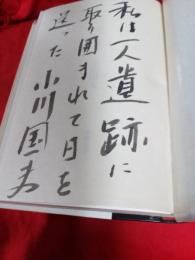 私は一人遺跡に
取り囲まれて日を
送った 小川国夫